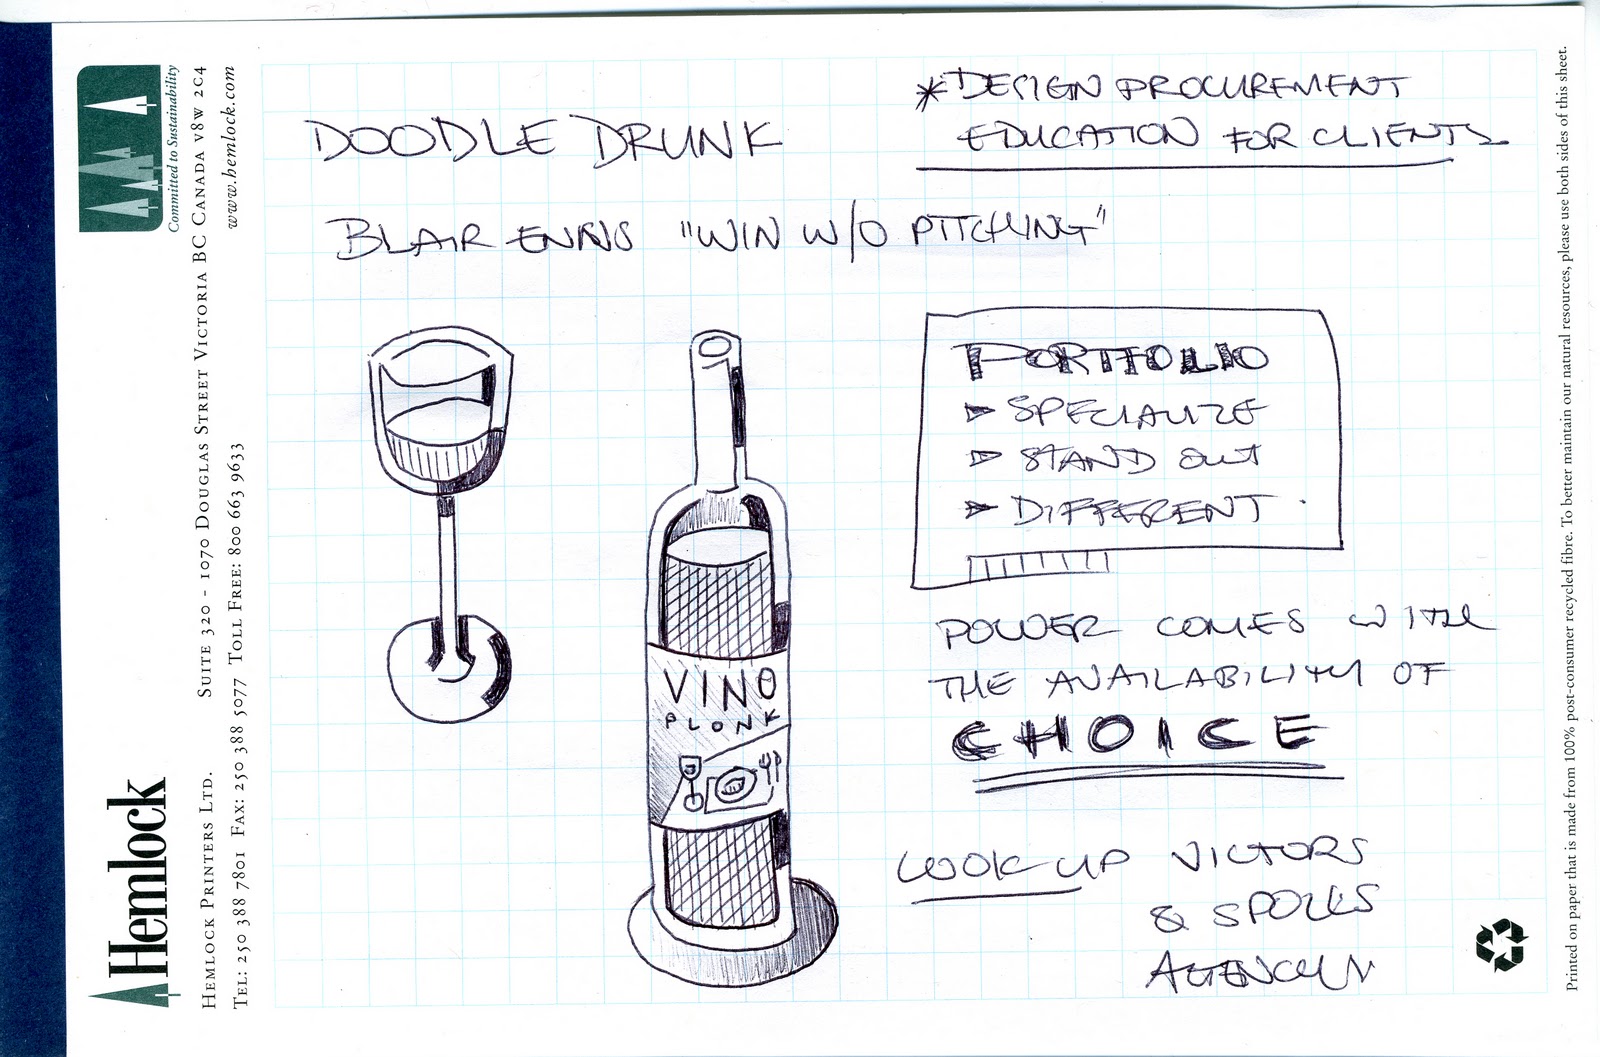 DOODLE DRUNK
BLAIR ENNS "WIN W/O PITCHING"
*DESIGN PROCUREMENT
EDUCATION FOR CLIENTS
PORTFOLIO
SPECIALIZE
STAND OUT
DIFFERENT
POWER COMES WITH
THE AVAILABILITY OF
CHOICE
LOOK UP VICTORS
& SPOILS
VINO
PLONK
Hemlock
Committed to Sustainability
HEMLOCK PRINTERS LTD. SUITE 320 - 1070 DOUGLAS STREET VICTORIA BC CANADA V8W 2C4
TEL: 250 388 7801 FAX: 250 388 5077 TOLL FREE: 800 663 9633 www.hemlock.com
Printed on paper that is made from 100% post-consumer recycled fibre. To better maintain our natural resources, please use both sides of this sheet.